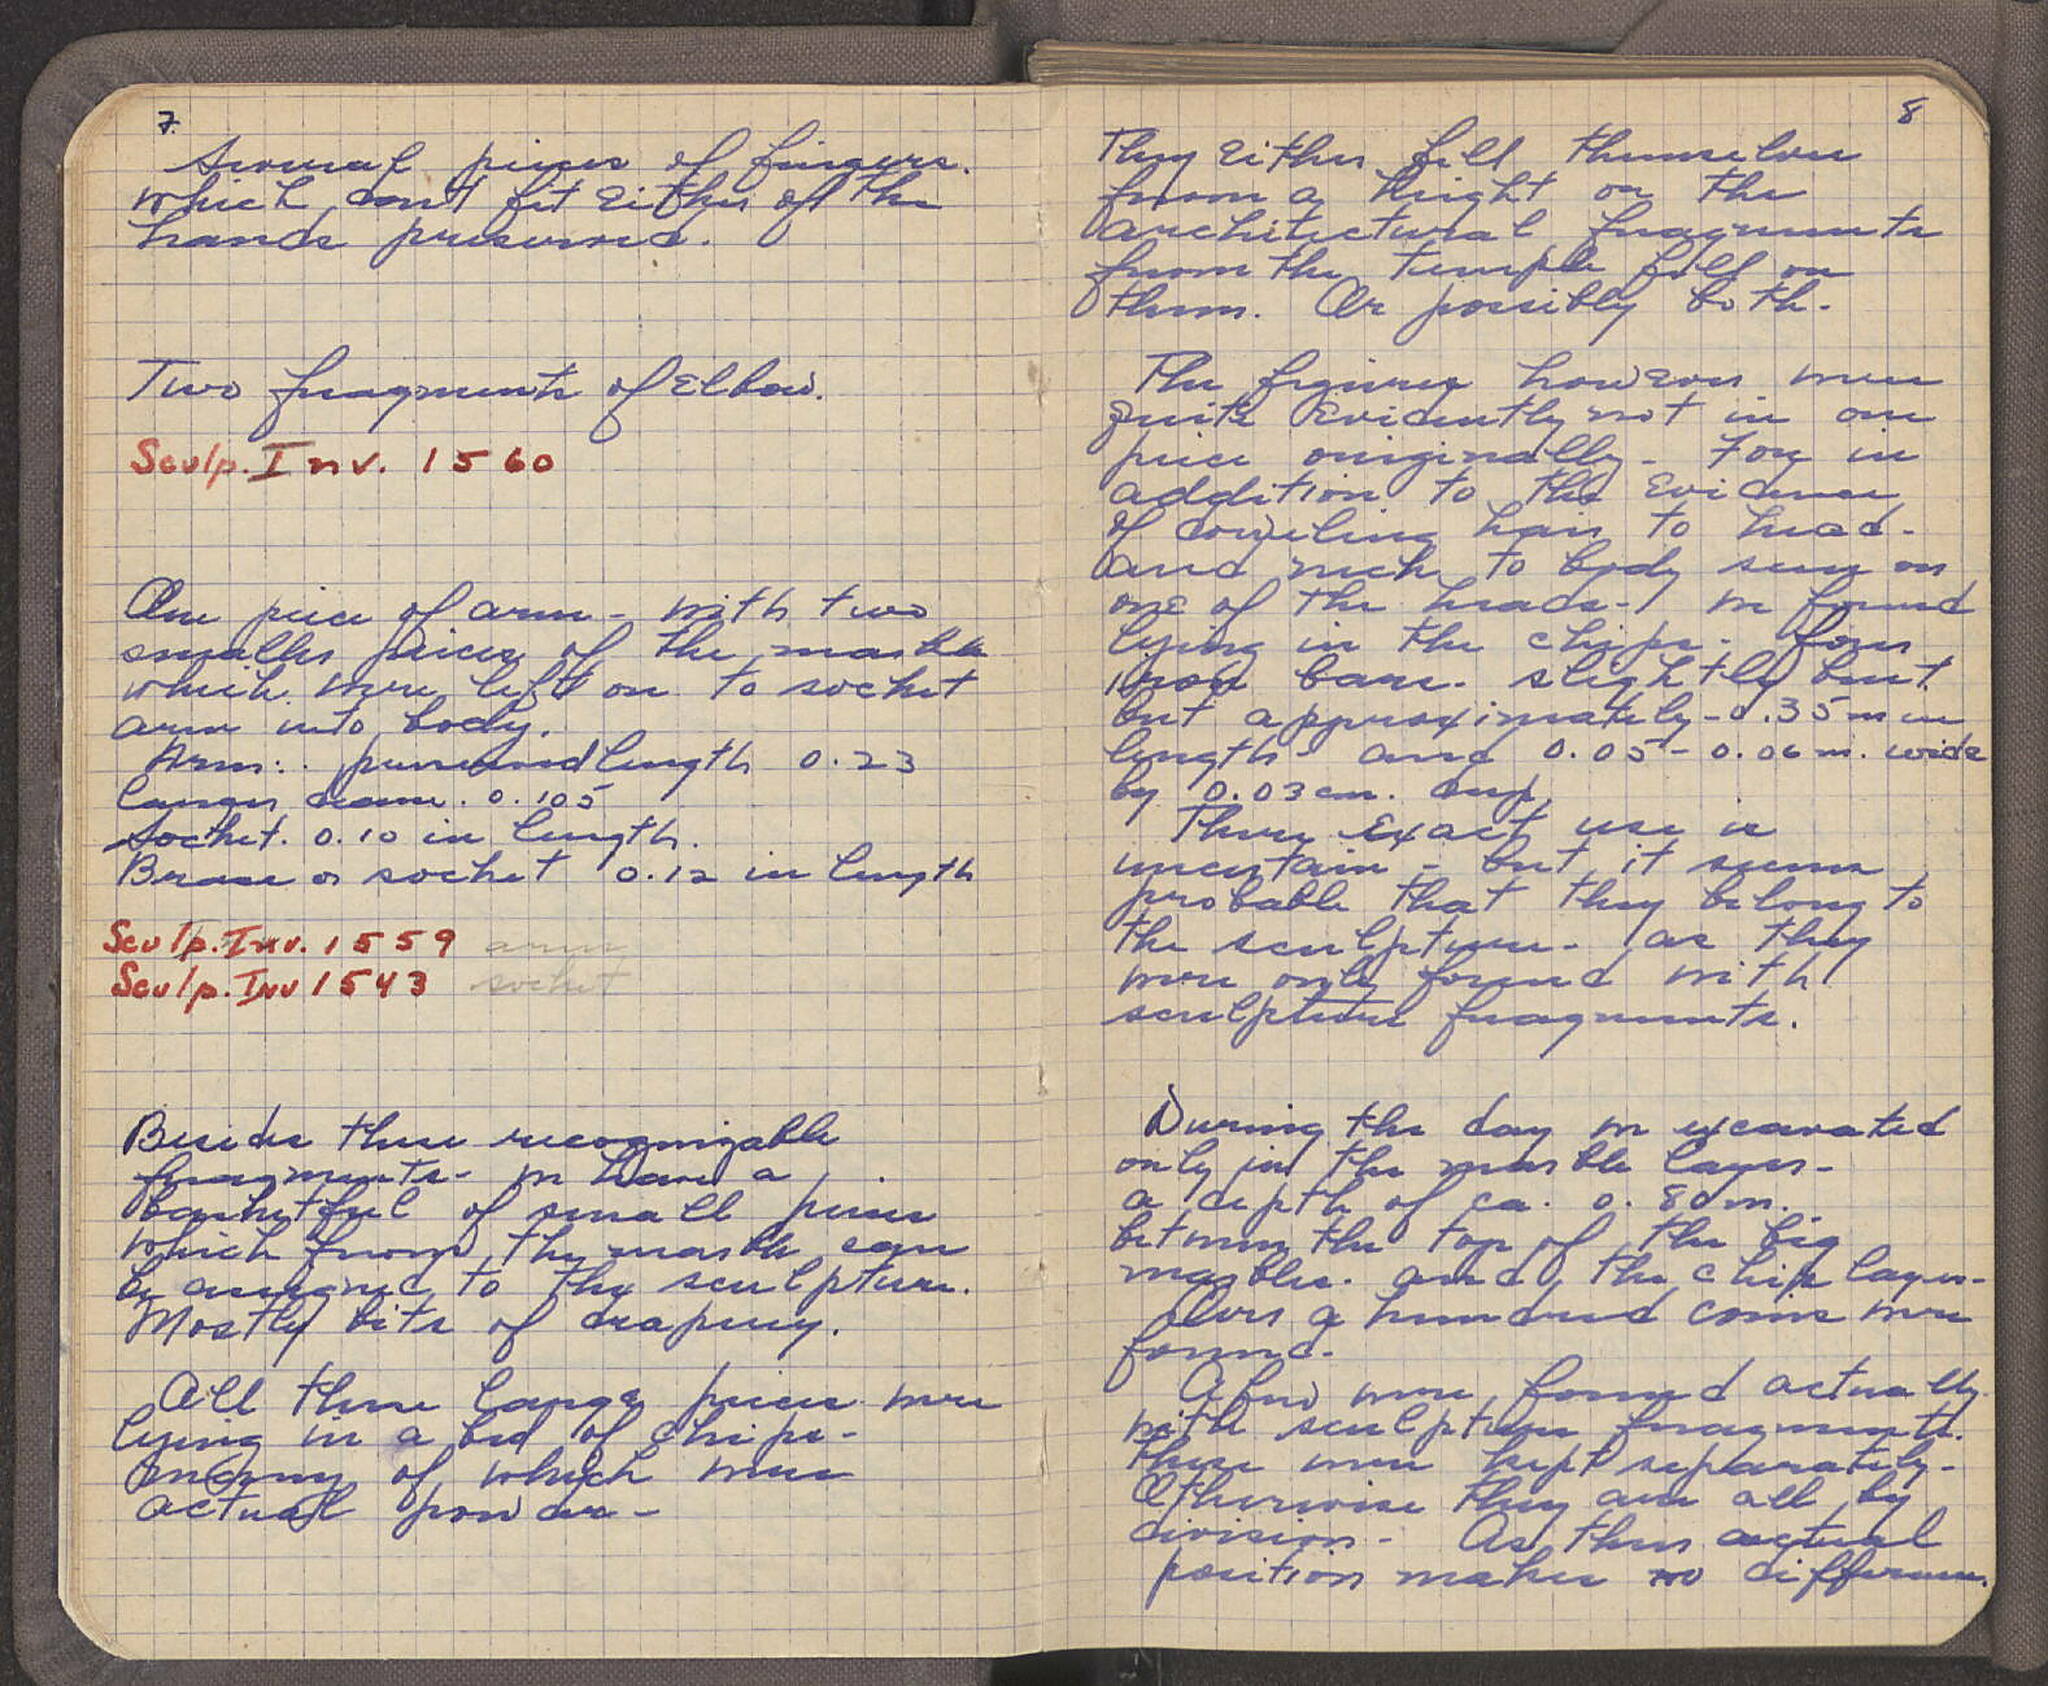 7.
Several pieces of fingers.
which don't fit either of the
hands preserved.
Two fragments of elbow.
Sculp. Inv. 1560
One piece of arm - with two
smaller pieces of the marble
which were left on to socket
arm into body.
Arm: preserved length 0.23
larger diam. 0.105
Socket. 0.10 in length.
Brace or socket 0.12 in length
Sculp. Inv. 1559 arm
Sculp. Inv 1543 socket
Besides these recognizable
fragments - we have a
basketful of small pieces
which from the marble can
be assigned to the sculpture.
Mostly bits of drapery.
All these large pieces were
lying in a bed of chips -
many of which were
actual powder -
8
They either fell themselves
from a height or the
architectural fragments
from the temple fell on
them. Or possibly both.
The figures however were
quite evidently not in one
piece originally - For in
addition to the evidence
of doweling hair to head -
and neck to body seen on
one of the heads - we found
lying in the chips - four
iron bars. slightly bent
but approximately - 0.35 m in
length - and 0.05 - 0.06 m. wide
by 0.03 cm. deep
There exact use is
uncertain - but it seems
probable that they belong to
the sculpture - as they
were only found with
sculpture fragments.
During the day we excavated
only in the marble layer -
a depth of ca. 0.80 m.
between the top of the big
marbles. and the chip layer -
Over a hundred coins were
found.
A few were found actually
with sculpture fragments.
these were kept separately -
Otherwise they are all by
division - As their actual
position makes no difference.